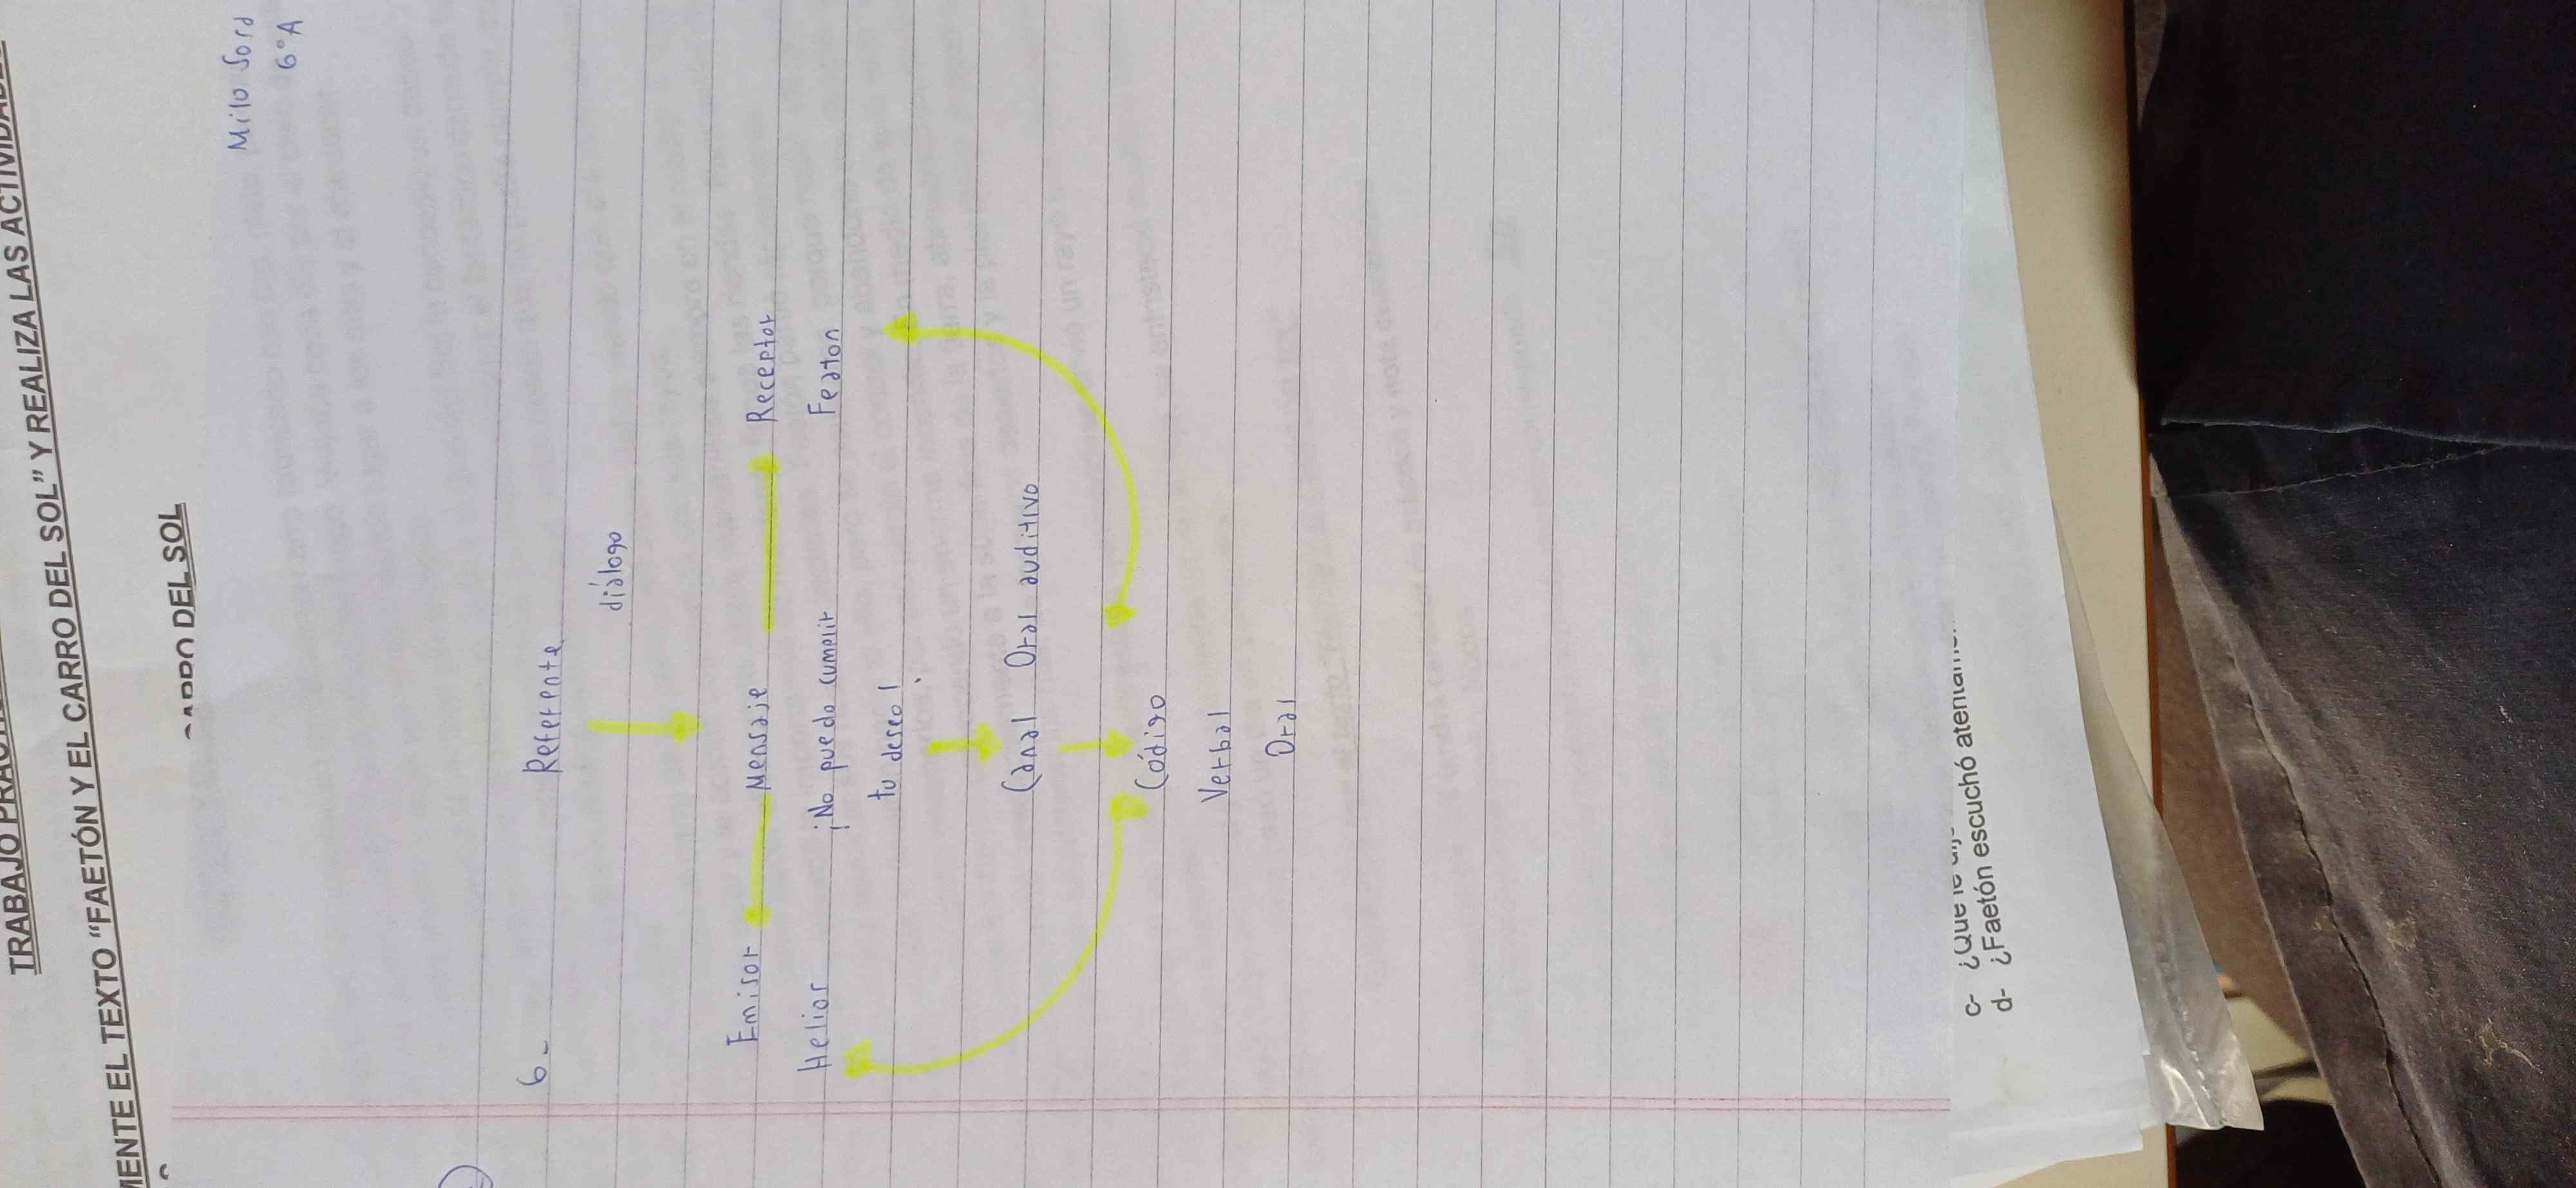 TRABAJO
MENTE EL TEXTO “FAETÓN Y EL CARRO DEL SOL” Y REALIZA LAS ACTIVIDADES
CARRO DEL SOL
Milo Sora
6°A
6-
Referente
diálogo
Emisor Mensaje Receptor
Helior ¡No puedo cumplir Featon
tu deseo!
Canal Oral auditivo
Código
Verbal
Oral
c- ¿Que le
d- ¿Faetón escuchó